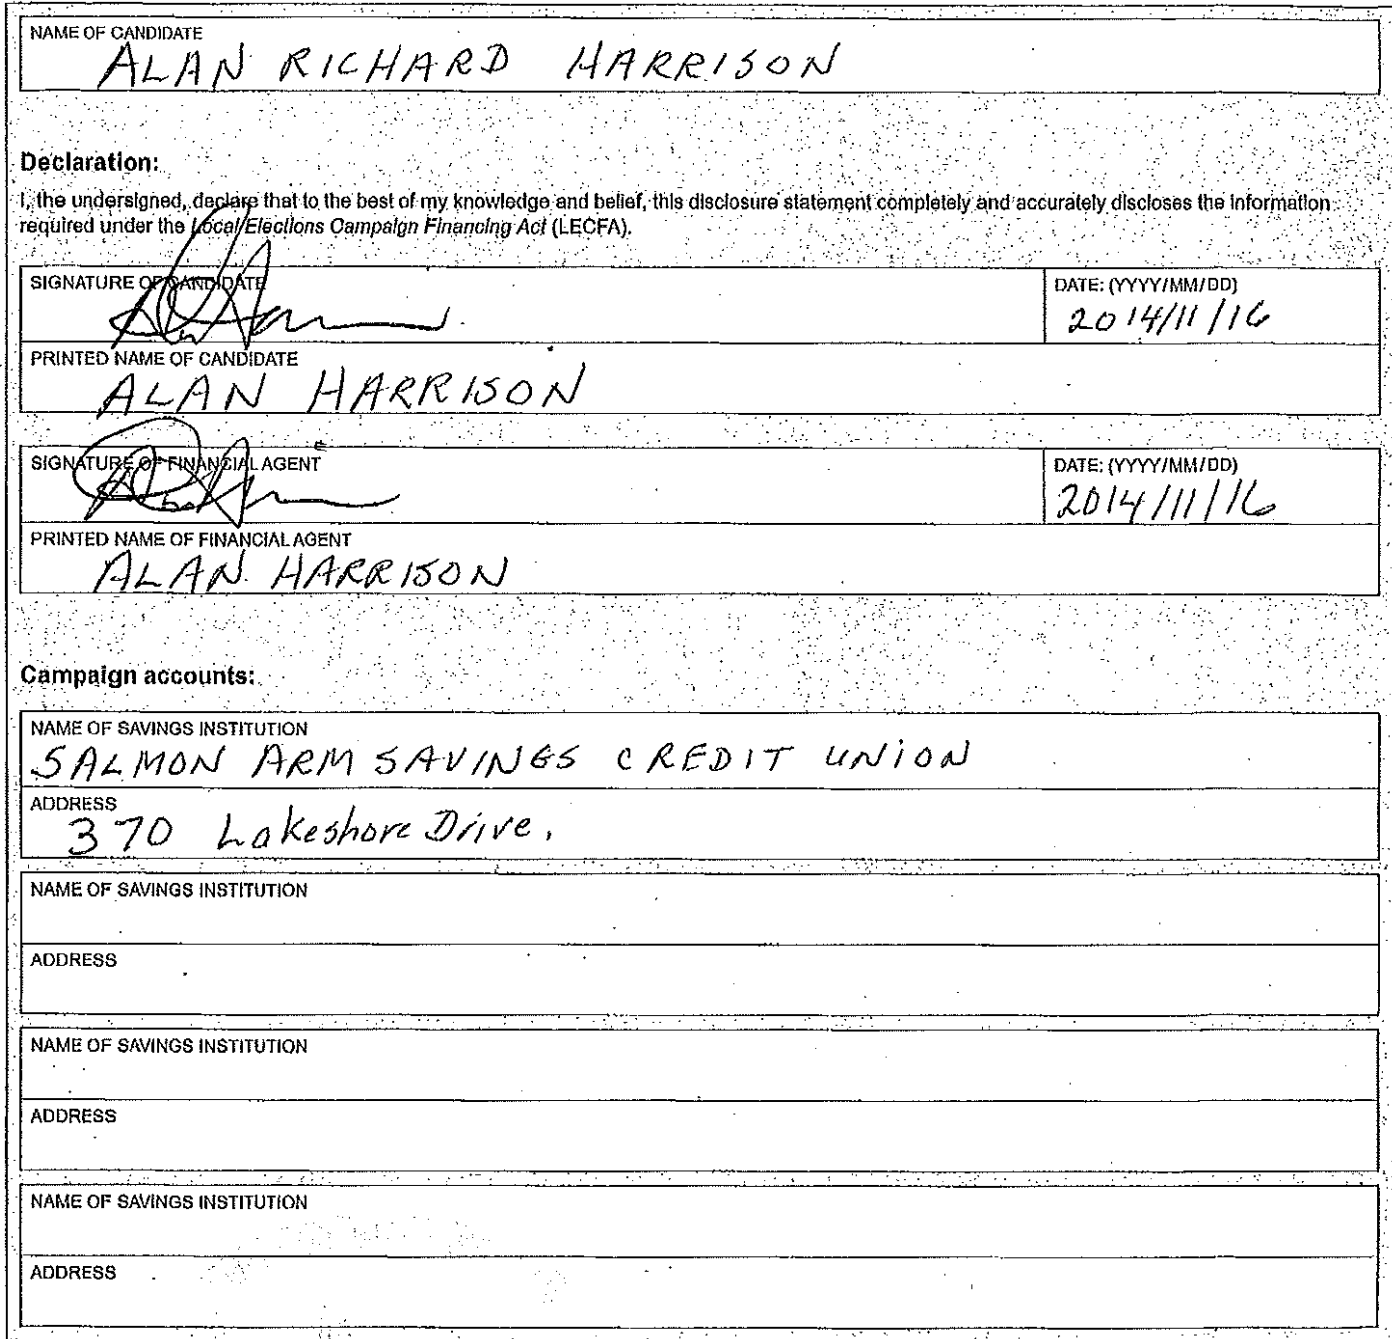 NAME OF CANDIDATE
ALAN RICHARD HARRISON
Declaration:
I, the undersigned, declare that to the best of my knowledge and belief, this disclosure statement completely and accurately discloses the information
required under the Local Elections Campaign Financing Act (LECFA).
SIGNATURE OF CANDIDATE
DATE: (YYYY/MM/DD)
2014/11/16
PRINTED NAME OF CANDIDATE
ALAN HARRISON
SIGNATURE OF FINANCIAL AGENT
DATE: (YYYY/MM/DD)
2014/11/16
PRINTED NAME OF FINANCIAL AGENT
ALAN HARRISON
Campaign accounts:
NAME OF SAVINGS INSTITUTION
SALMON ARM SAVINGS CREDIT UNION
ADDRESS
370 Lakeshore Drive.
NAME OF SAVINGS INSTITUTION
ADDRESS
NAME OF SAVINGS INSTITUTION
ADDRESS
NAME OF SAVINGS INSTITUTION
ADDRESS